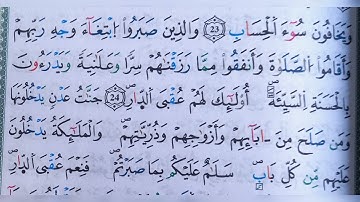 وَيَخَافُونَ سُوٓءَ اَ۬لْحِسَابِ 23 وَالذِينَ صَبَرُوا اُ۪بْتِغَآءَ وَجْهِ رَبِّهِمْ
وَأَقَامُوا اُ۬لصَّلَوٰةَ وَأَنفَقُوا مِمَّا رَزَقْنَٰهُمْ سِرّاٗ وَعَلَٰنِيَةٗ وَيَدْرَءُونَ
بِالْحَسَنَةِ اِ۬لسَّيِّئَةَ أُوْلَٰٓئِكَ لَهُمْ عُقْبَى اَ۬لدّ۪ارِ 24 جَنَّٰتُ عَدْنٖ يَدْخُلُونَهَا
وَمَن صَلَحَ مِنَ ـابَآئِهِمْ وَأَزْوَٰجِهِمْ وَذُرِّيَّٰتِهِمْ وَالْمَلَٰٓئِكَةُ يَدْخُلُونَ
عَلَيْهِم مِّن كُلِّ بَابٖ سَلَٰمٌ عَلَيْكُم بِمَا صَبَرْتُمْ فَنِعْمَ عُقْبَى اَ۬لدّ۪ارِ